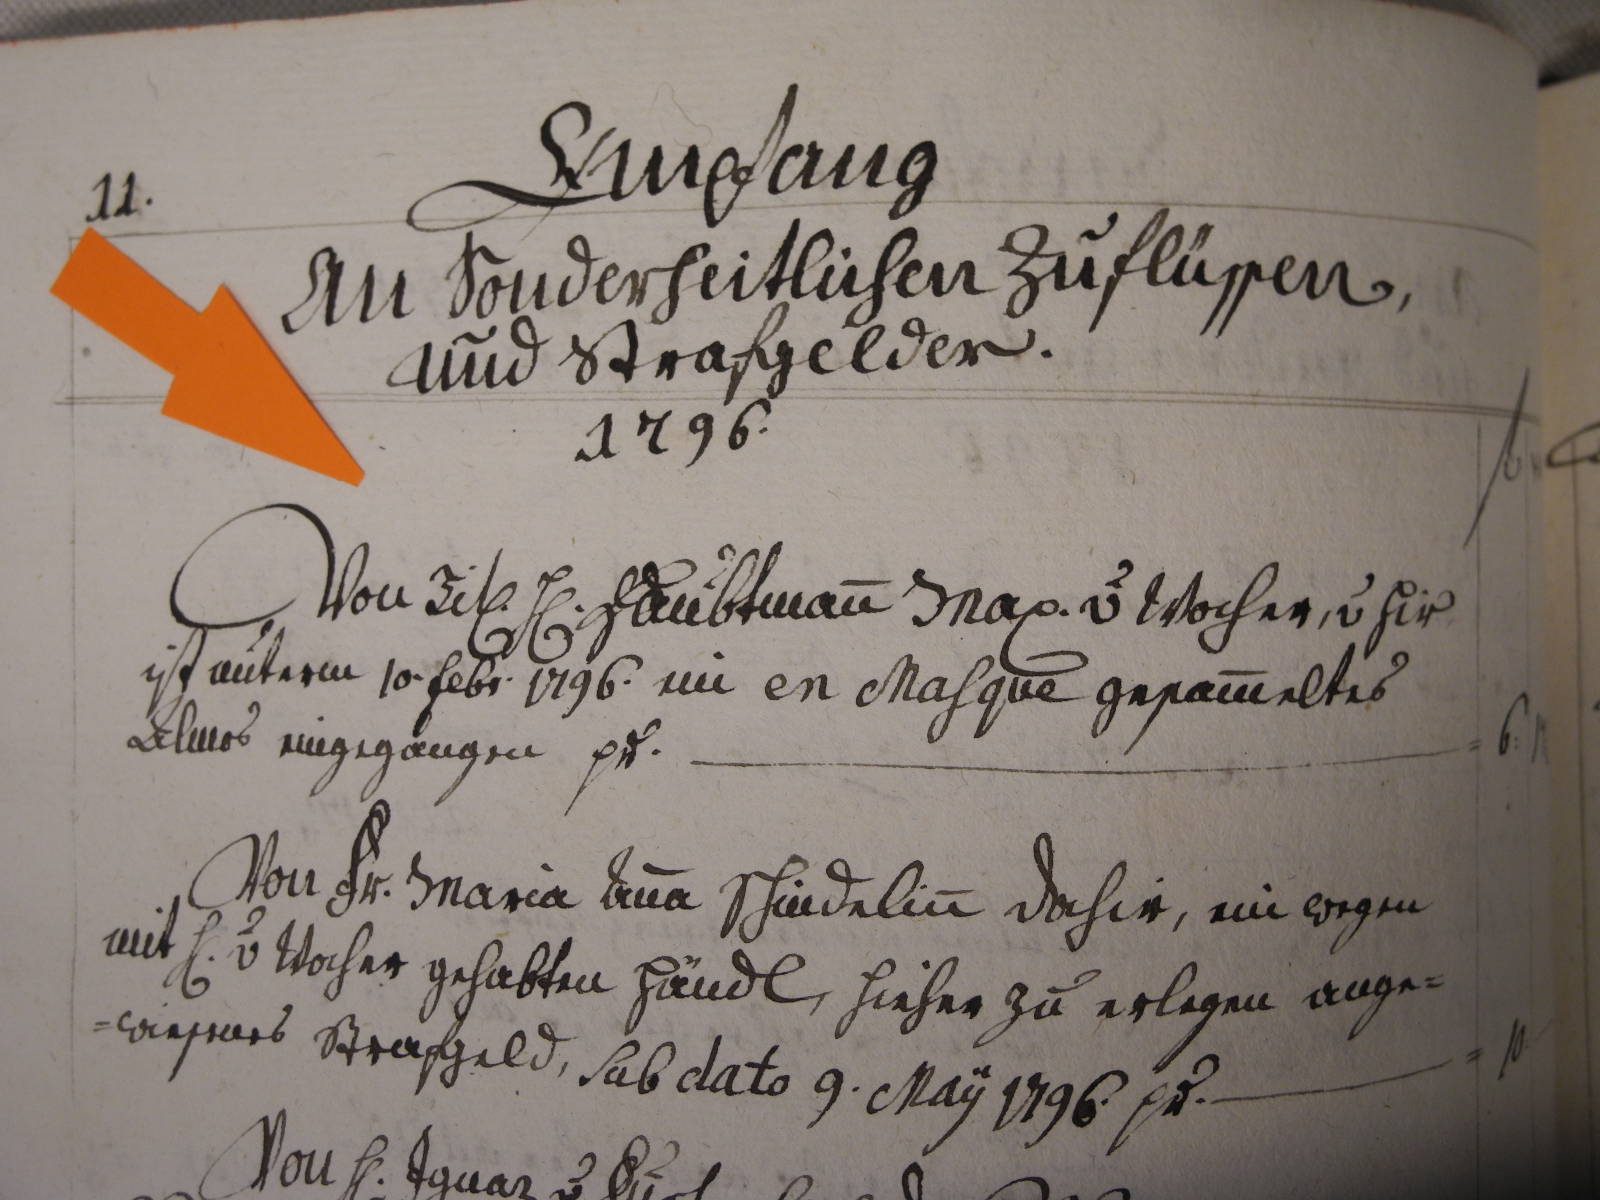 11.
Empfang
An Sonderheitlichen Zuflüssen,
und Strafgelder.
1796.
Von Tit. H. Haubtmañ Max. v Vocher, v hir
ist auterm 10. Febr. 1796. ein en Masque gesam̃eltes
Almos eingegangen pr. = 6.
Von Fr. Maria Aña Schindeliñ dahir, ein wegen
mit H. v Vocher gehabten Händl, hieher zu erlegen ange=
=wiesenes Strafgeld, sub dato 9. Maÿ 1796. pr. = 10
Von H. Ignaz v